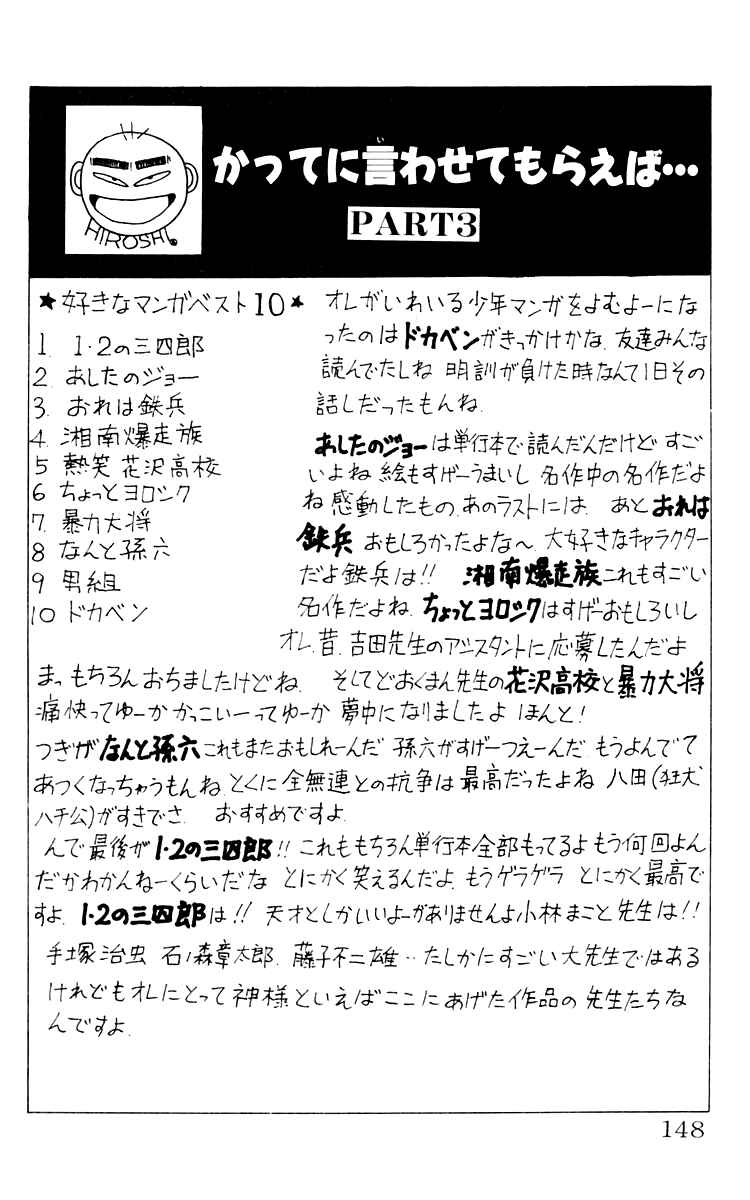 かってに言わせてもらえば…
PART3
HIROSHI.
★好きなマンガベスト10★
1. 1・2の三四郎
2. あしたのジョー
3. おれは鉄兵
4. 湘南爆走族
5 熱笑 花沢高校
6 ちょっとヨロシク
7. 暴力大将
8 なんと孫六
9 男組
10 ドカベン
オレがいわいる少年マンガをよむよーにな
ったのはドカベンがきっかけかな. 友達みんな
読んでたしね 明訓が負けた時なんて1日その
話しだったもんね.
あしたのジョーは単行本で読んだんだけど すご
いよね 絵もすげーうまいし 名作中の名作だよ
ね 感動したもの. あのラストには. あと おれは
鉄兵 おもしろかったよな〜. 大好きなキャラクター
だよ鉄兵は!! 湘南爆走族これもすごい
名作だよね. ちょっとヨロシクはすげーおもしろいし
オレ. 昔. 吉田先生のアシスタントに応募したんだよ
まっ もちろん おちましたけどね. そしてどおくまん先生の花沢高校と暴力大将
痛快ってゆーか かっこいーってゆーか 夢中になりましたよ ほんと!
つぎが なんと孫六 これもまたおもしれーんだ 孫六がすげーつえーんだ もうよんでて
あつくなっちゃうもんね. とくに 全無連との抗争は最高だったよね 八田(狂犬
ハチ公)がすきでさ. おすすめですよ.
んで最後が 1・2の三四郎!! これももちろん単行本全部もってるよ もう何回よん
だかわかんねーくらいだな とにかく笑えるんだよ. もうゲラゲラ とにかく最高で
すよ. 1・2の三四郎は!! 天才としかいいよーがありませんよ小林まこと先生は!!
手塚治虫 石ノ森章太郎. 藤子不二雄‥たしかにすごい大先生ではある
けれどもオレにとって神様といえばここにあげた作品の先生たちな
んですよ.
148